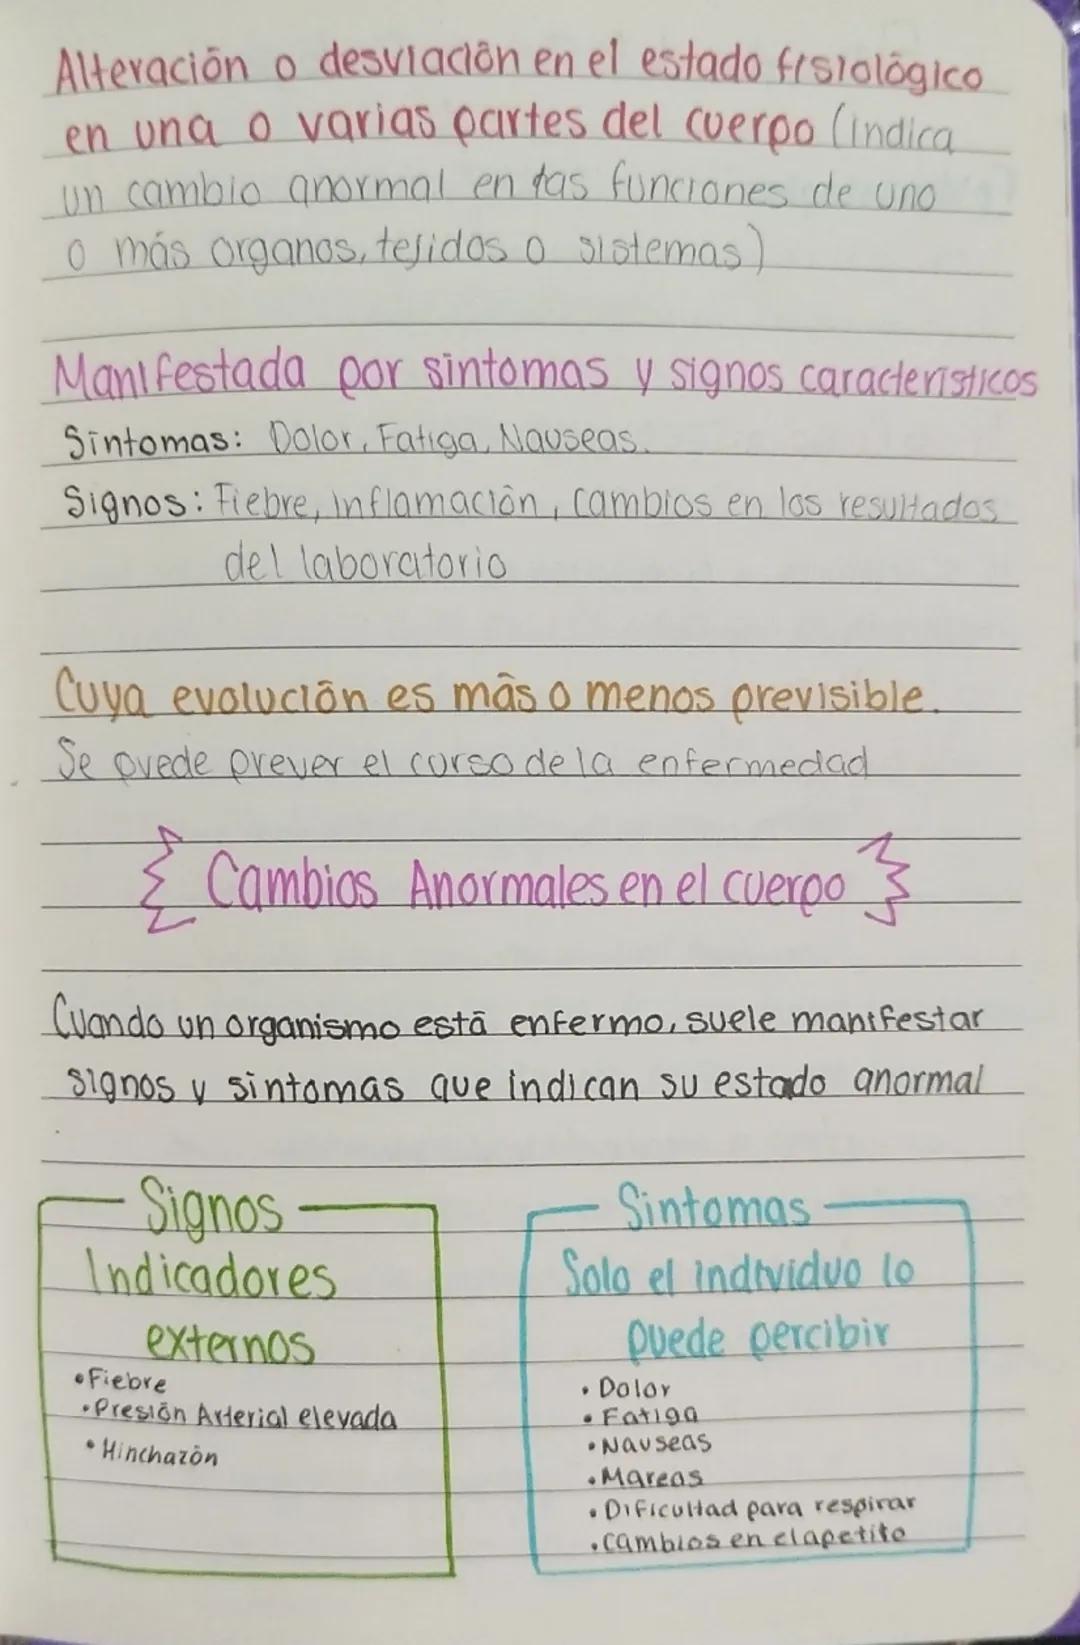 Alteración o desviación en el estado fisiológico
en una o varias partes del cuerpo (indica
un cambio anormal en las funciones de uno
o más organos, tejidos o sistemas)
Manifestada por sintomas y signos caracteristicos
Sintomas: Dolor, Fatiga, Nauseas.
Signos: Fiebre, inflamación, cambios en los resultados
del laboratorio
Cuya evolución es más o menos previsible.
Se puede prever el curso de la enfermedad
Cambios Anormales en el cuerpo
Cuando un organismo está enfermo, suele manifestar
signos y sintomas que indican su estado anormal
Signos
Indicadores
externos
• Fiebre
• Presión Arterial elevada
• Hinchazón
Sintomas
Solo el individuo lo
puede percibir
• Dolor
• Fatiga
• Nauseas
• Mareos
• Dificultad para respirar
• Cambios en el apetito